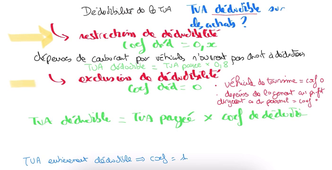 Déductibilité de la TVA
TVA déductible sur
les achats ?
restriction de déductibilité
Coef déd = 0,x
dépenses de carburant par véhicule n'ouvrant pas droit à déduction
TVA déductible = TVA payée x 0,8
exclusion de déductibilité
Coef déd = 0
véhicule de tourisme = coef 0
dépense de logement au profit
dirigeant = coef 0
TVA déductible = TVA payée x coef de déduction
TVA entièrement déductible => coef = 1